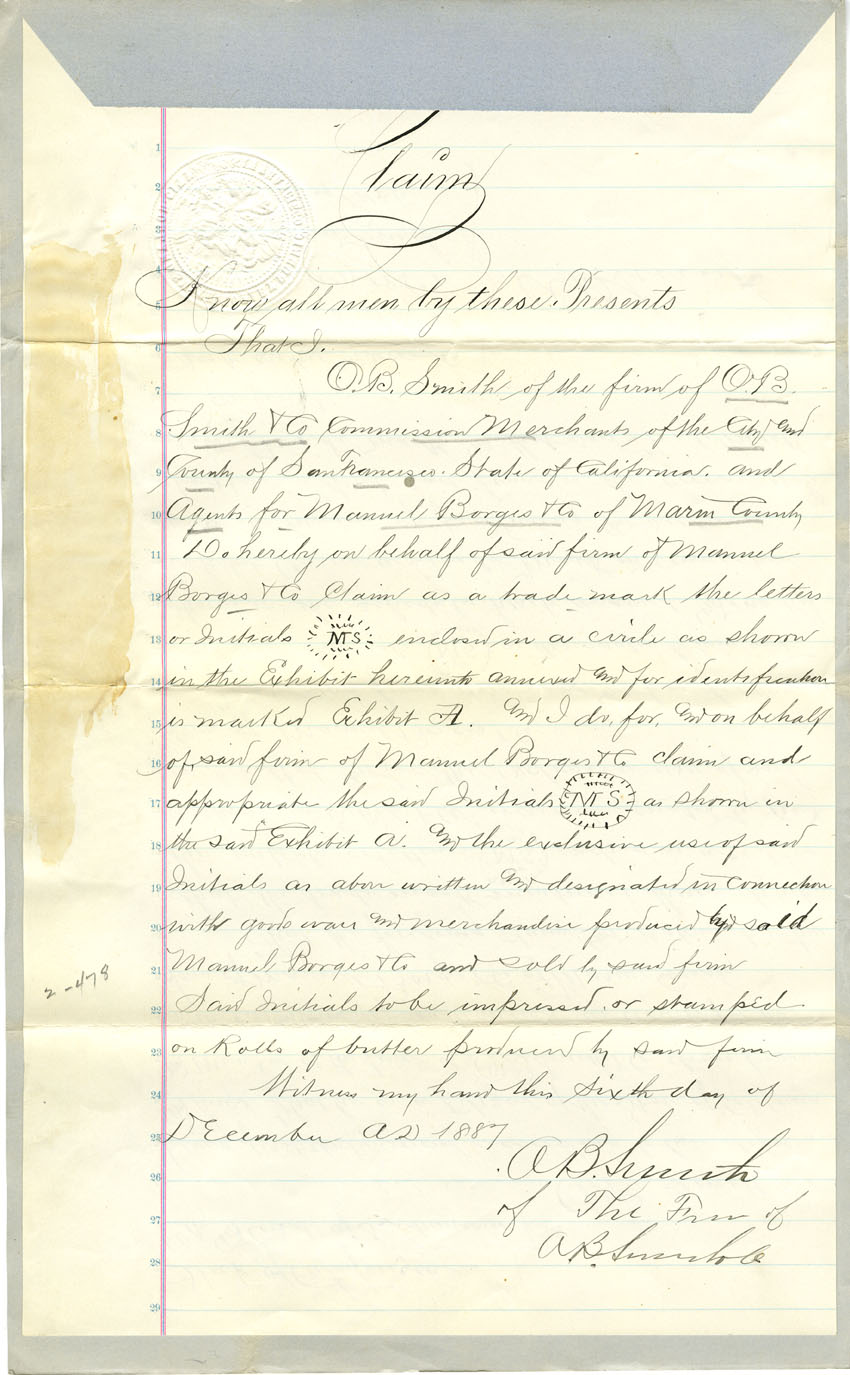 Claim
Know all men by these Presents
That I.
O.B. Smith of the firm of O.B.
Smith & Co Commission Merchants of the City and
County of San Francisco. State of California. and
Agents for Manuel Borges & Co of Marin County
Do hereby on behalf of said firm of Manuel
Borges & Co Claim as a trade mark the letters
or Initials MS enclosed in a circle as shown
in the Exhibit hereunto annexed and for identification
is marked Exhibit A. and I do, for, and on behalf
of, said firm of Manuel Borges & Co claim and
appropriate the said Initials MS as shown in
the said Exhibit A. and the exclusive use of said
Initials as above written and designated in connection
with goods ware and merchandise produced by said
Manuel Borges & Co and sold by said firm
Said Initials to be impressed. or stamped
on Rolls of butter produced by said firm
Witness my hand this sixth day of
December AD 1887
2-478
O.B. Smith
of The Firm of
O.B. Smith & Co
1
2
3
4
5
6
7
8
9
10
11
12
13
14
15
16
17
18
19
20
21
22
23
24
25
26
27
28
29